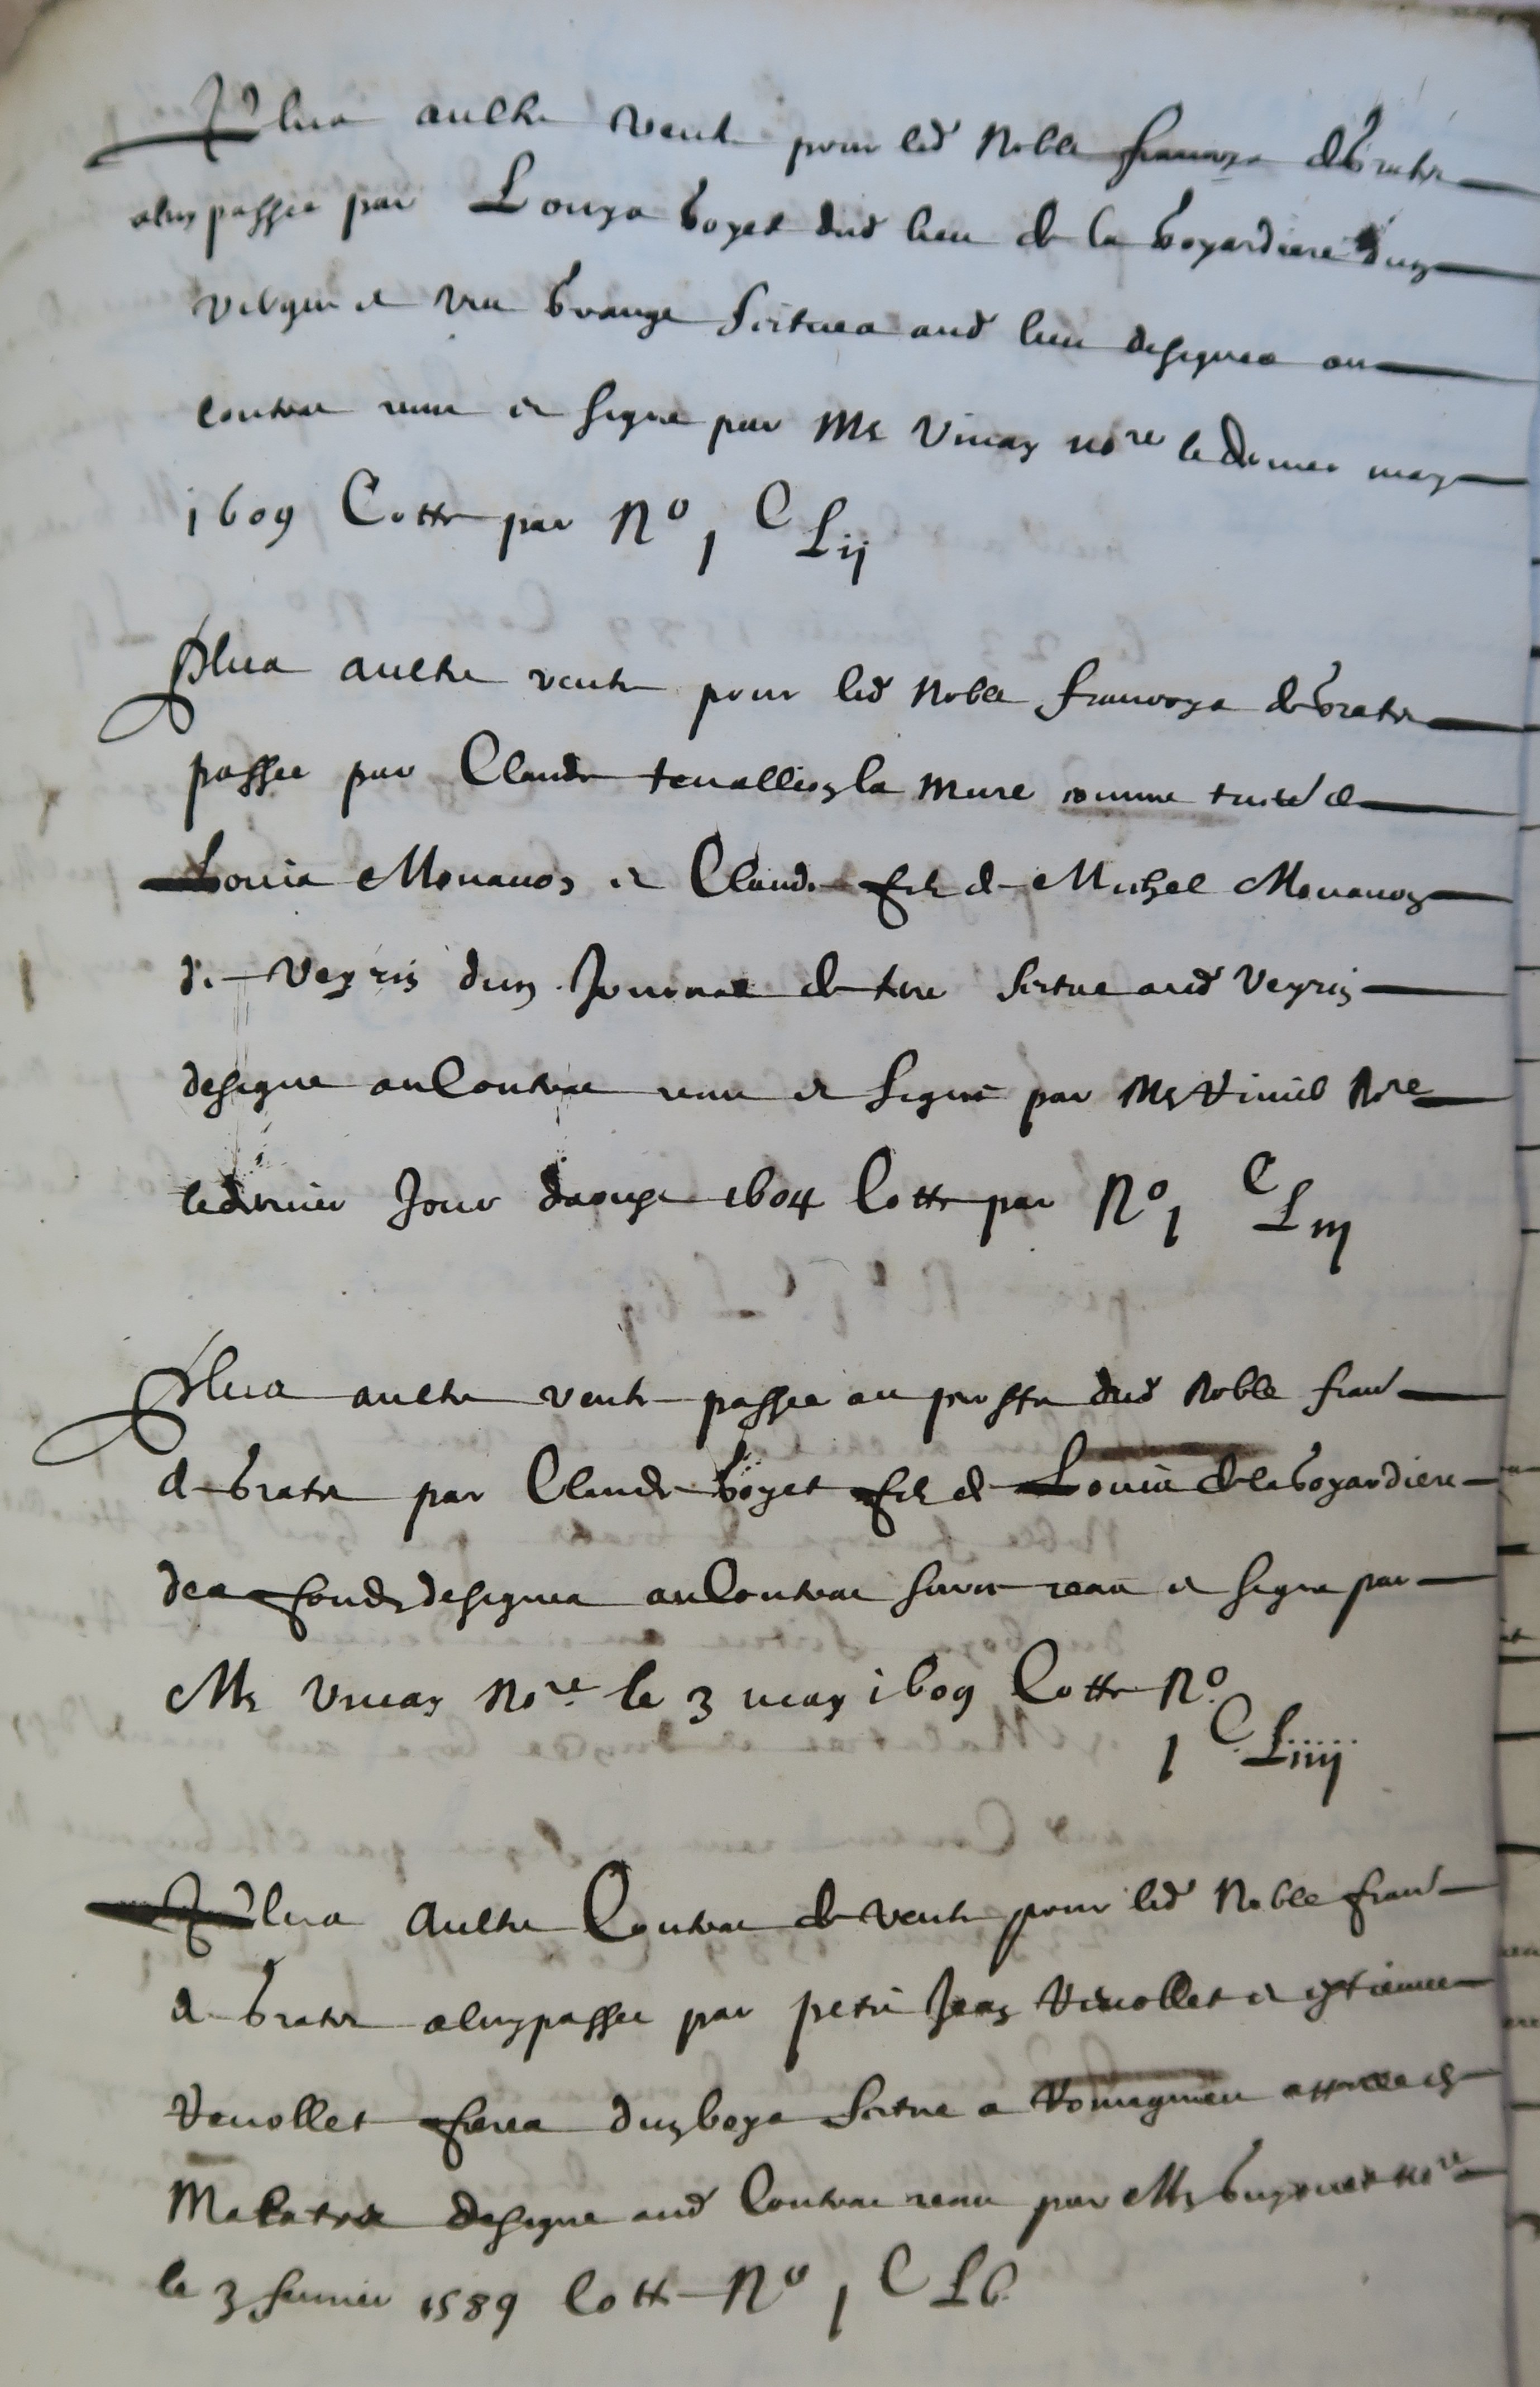 Plus aultre vente pour led noble françoys de bratie
aluy passée par Louys boyet dud lieu de la boyardiere dung
et une grange scitues aud lieu designes au
contrac receu et signé par Me Vinay nore le dernier may
1609 Cotte par No 1 C Lij
Plus aultre vente pour led noble françoys de bratie
passée par Claude la Mure comme de
Louis Monanoz et Claude filz de Michel Monanoz
de Veyrin dung Journal de terre scitue aud Veyrin
designe au Contrac receu et signé par Me nore
le dernier Jour daougst 1604 Cotte par No 1 C Liij
Plus aultre vente passée au proffit dud noble fran
de bratie par Claude boyet filz de Louis de la boyardiere
des fondz designes au Contrac sur ce receu et signé par
Me Vinay Nore le 3 may 1609 Cotte No
1 C Liiij
Plus aultre Contrac de vente pour led noble fran
de bratie aluy passée par petit Jean Venollet et estienne
Venollet freres dung boys scitue a appelle de
Malatrat designe aud Contrac receu par Me nore
le 3 febvrier 1589 Cotte No 1 C Lb